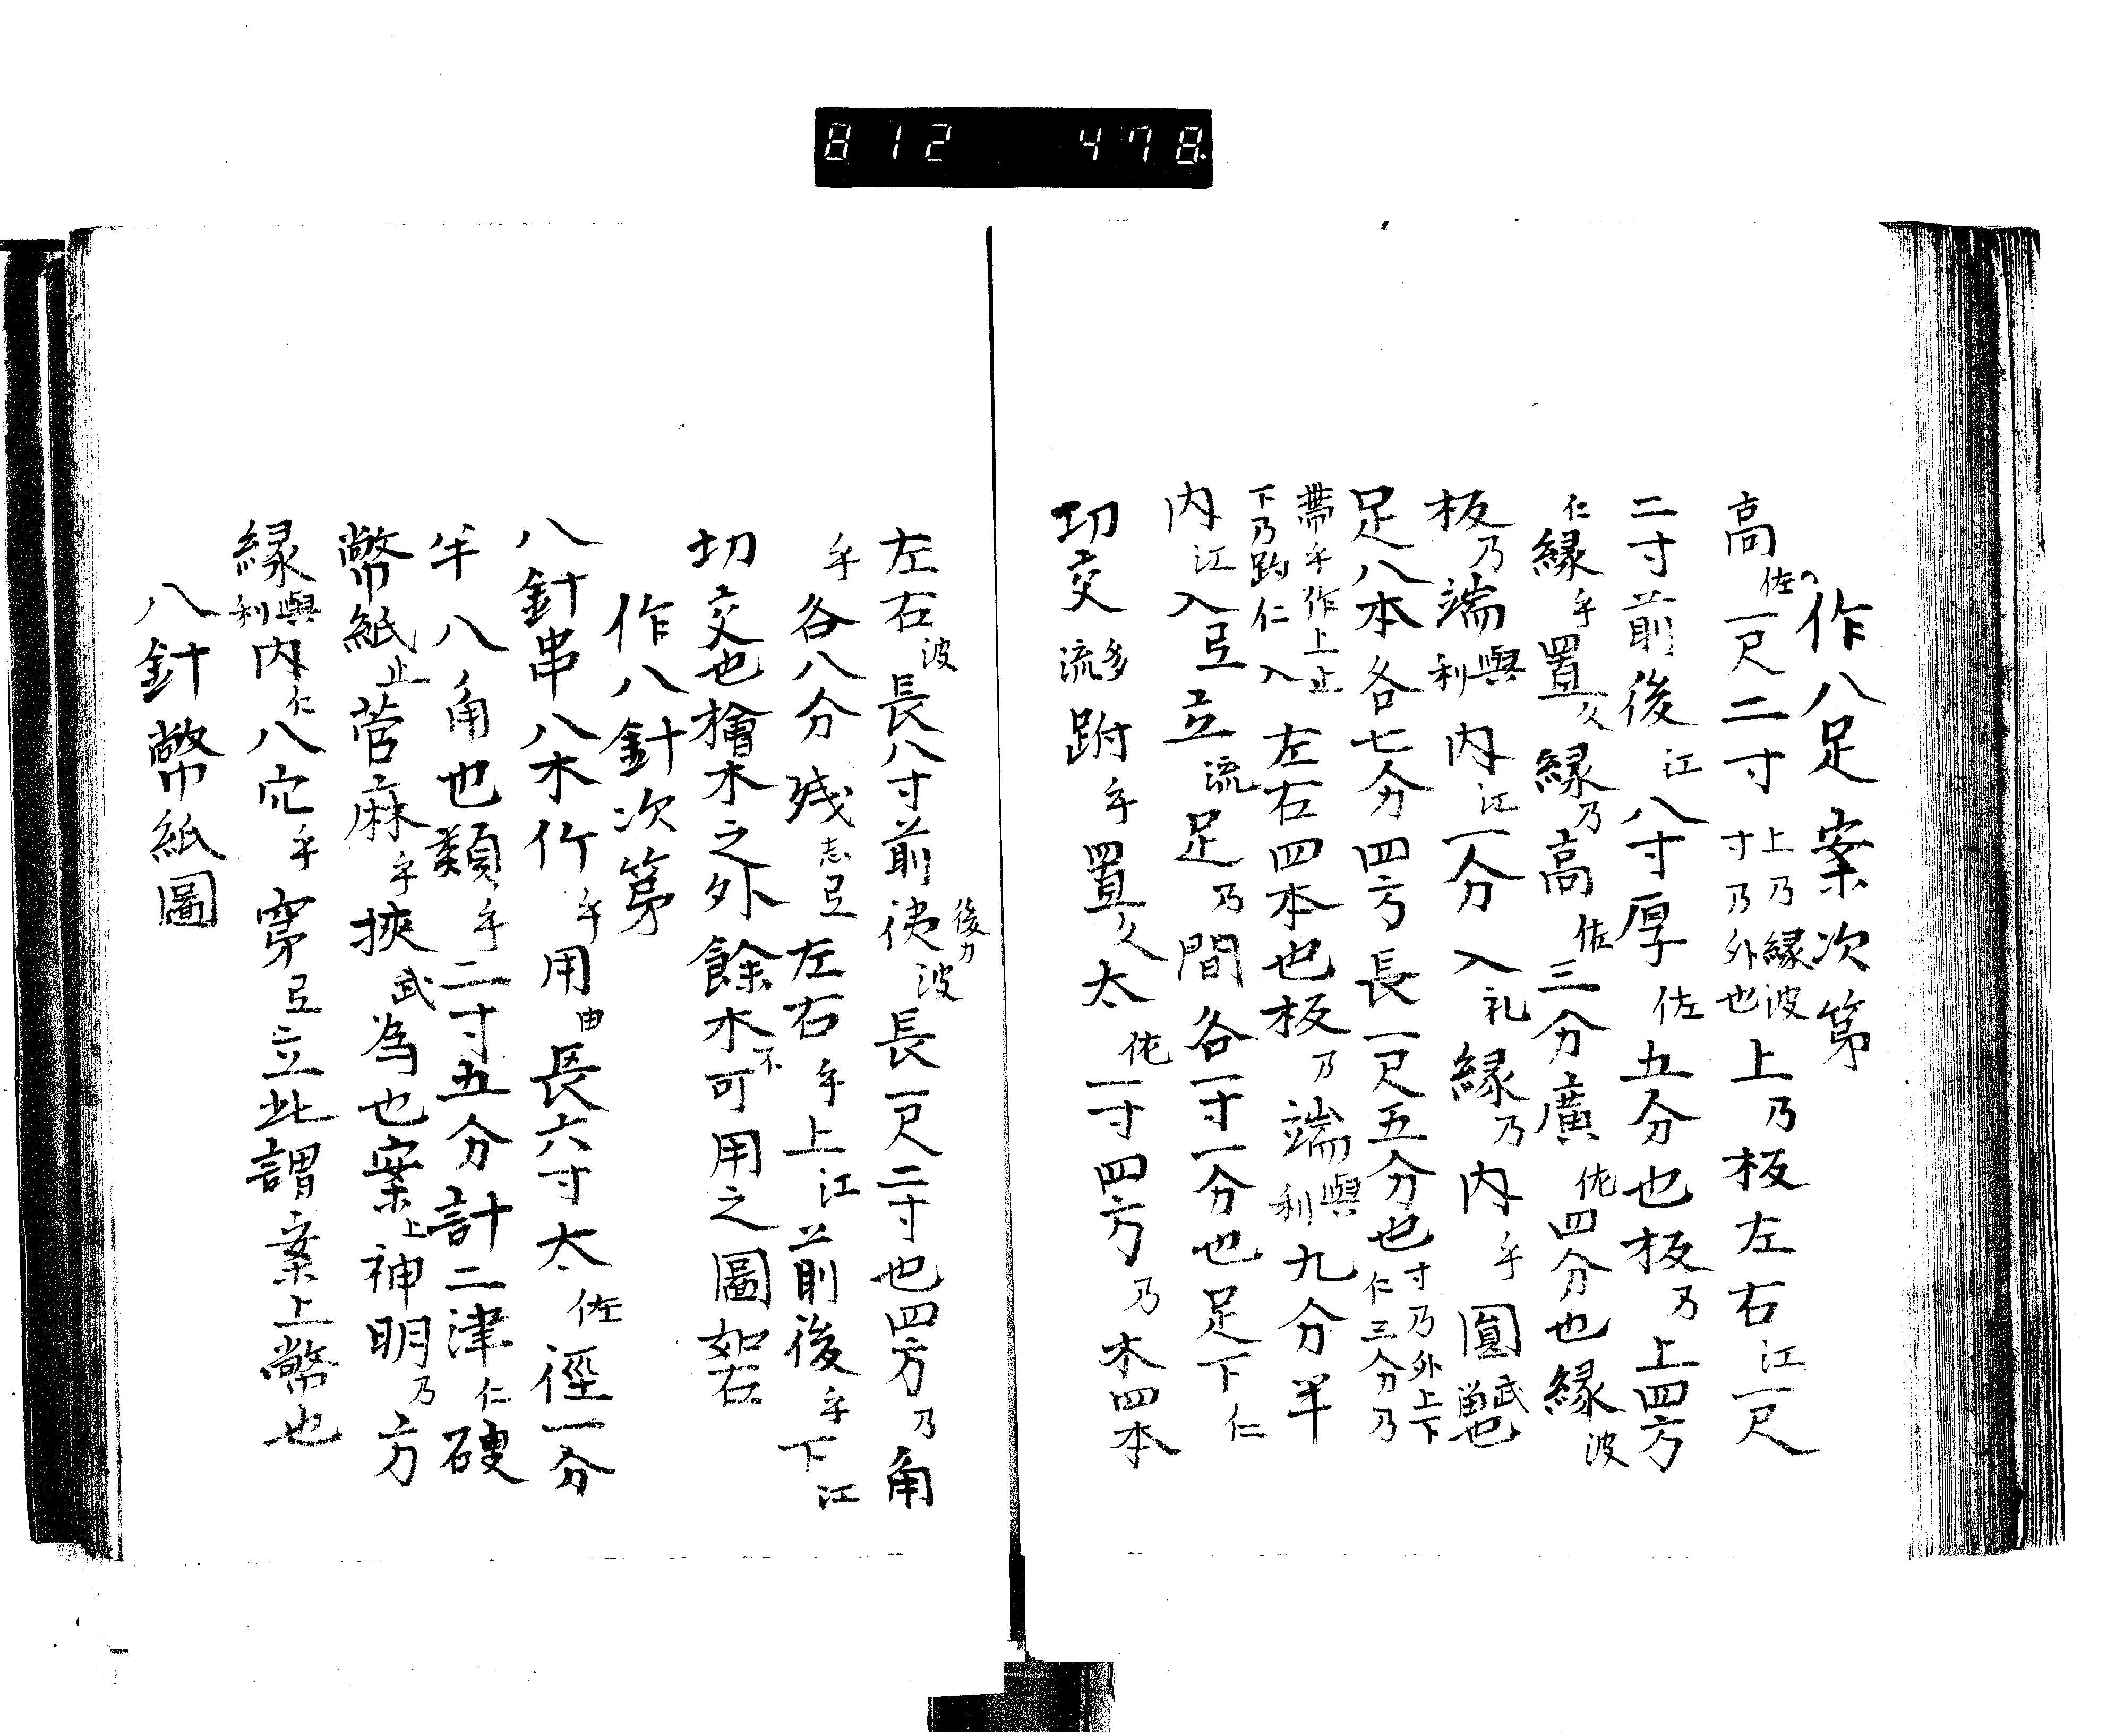 812 478.
作八足案次第
高佐一尺二寸上乃縁波寸乃外也上乃板左右江一尺
二寸前後江八寸厚佐五分也板乃上四方
仁縁乎置久縁乃高佐三分廣佐四分也縁波
板乃端與利内江一分入礼縁乃内乎圓武也
足八本各七分四方長一尺五分也寸乃外上下仁三分乃
帶乎作上止下乃趵仁入左右四本也板乃端與利九分半
内江入弖立流足乃間各一寸一分也足下仁
切交多流跗乎置久太佐一寸四方乃木四本
左右波長八寸前後波長一尺二寸也四方乃角
乎各八分残志弖左右乎上江前後乎下江
切交也檜木之外餘木不可用之圖如右
作八針次第
八針串八木竹乎用由長六寸太佐徑一分
半八角也類乎二寸五分計二津仁破
幣紙止菅麻乎挾武為也案上神明乃方
縁與利内仁八穴乎穿弖立此謂案上幣也
八針幣紙圖